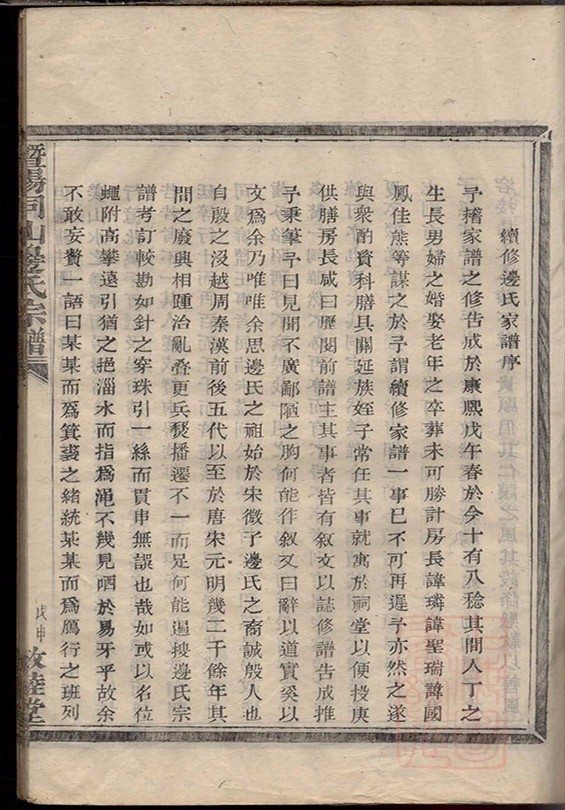 續修邊氏家譜序
予稽家譜之修告成於康熙戊午春於今十有八稔其間人丁之
生長男婦之婚娶老年之卒葬未可勝計房長諱璘諱聖瑞諱國
鳳佳熊等謀之於予謂續修家譜一事已不可再遲予亦然之遂
與衆酌資科膳具關延族姪子常任其事就寓於祠堂以便授庚
供膳房長咸曰歷閱前譜主其事者皆有叙文以誌修譜告成推
予秉筆予曰見聞不廣鄙陋之胸何能作叙叉曰辭以道實奚以
文爲余乃唯唯余思邊氏之祖始於宋微子邊氏之裔誠殷人也
自殷之沒越周秦漢前後五代以至於唐宋元明幾二千餘年其
間之廢興相踵治亂叠更兵燹播遷不一而足何能遍搜邊氏宗
譜考訂較勘如針之穿珠引一絲而貫串無誤也哉如或以名位
蠅附高攀遠引猶之挹淄水而指爲澠不幾見哂於易牙乎故余
不敢妄贅一語曰某某而爲箕裘之緒統某某而爲鴈行之班列
暨陽同山邊氏宗譜
戊申 敦睦堂